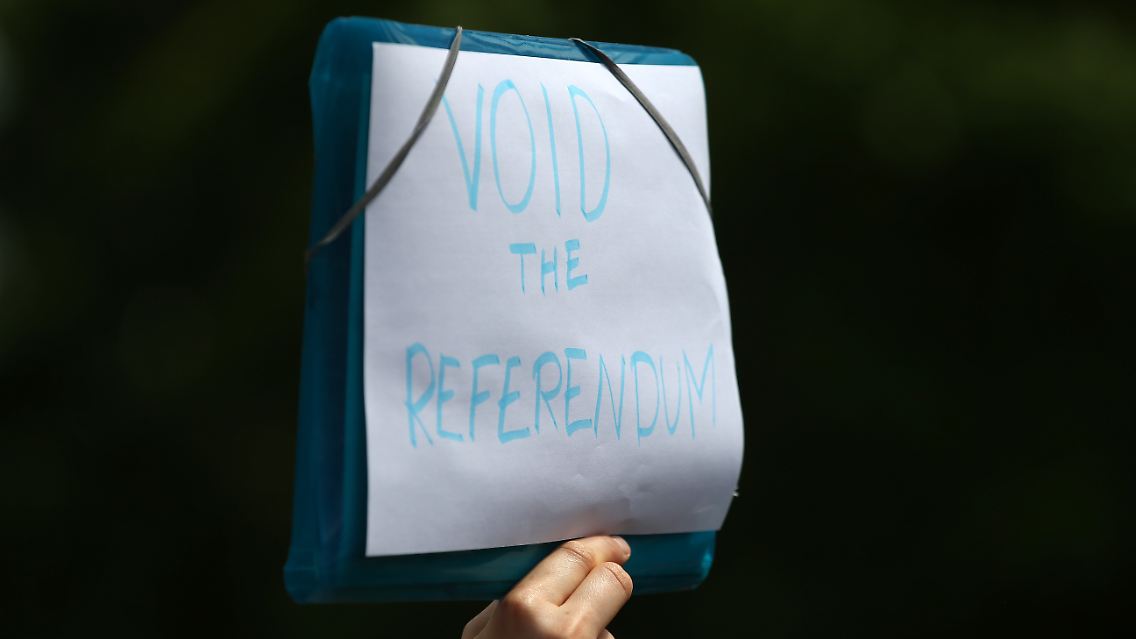 VOID
THE
REFERENDUM